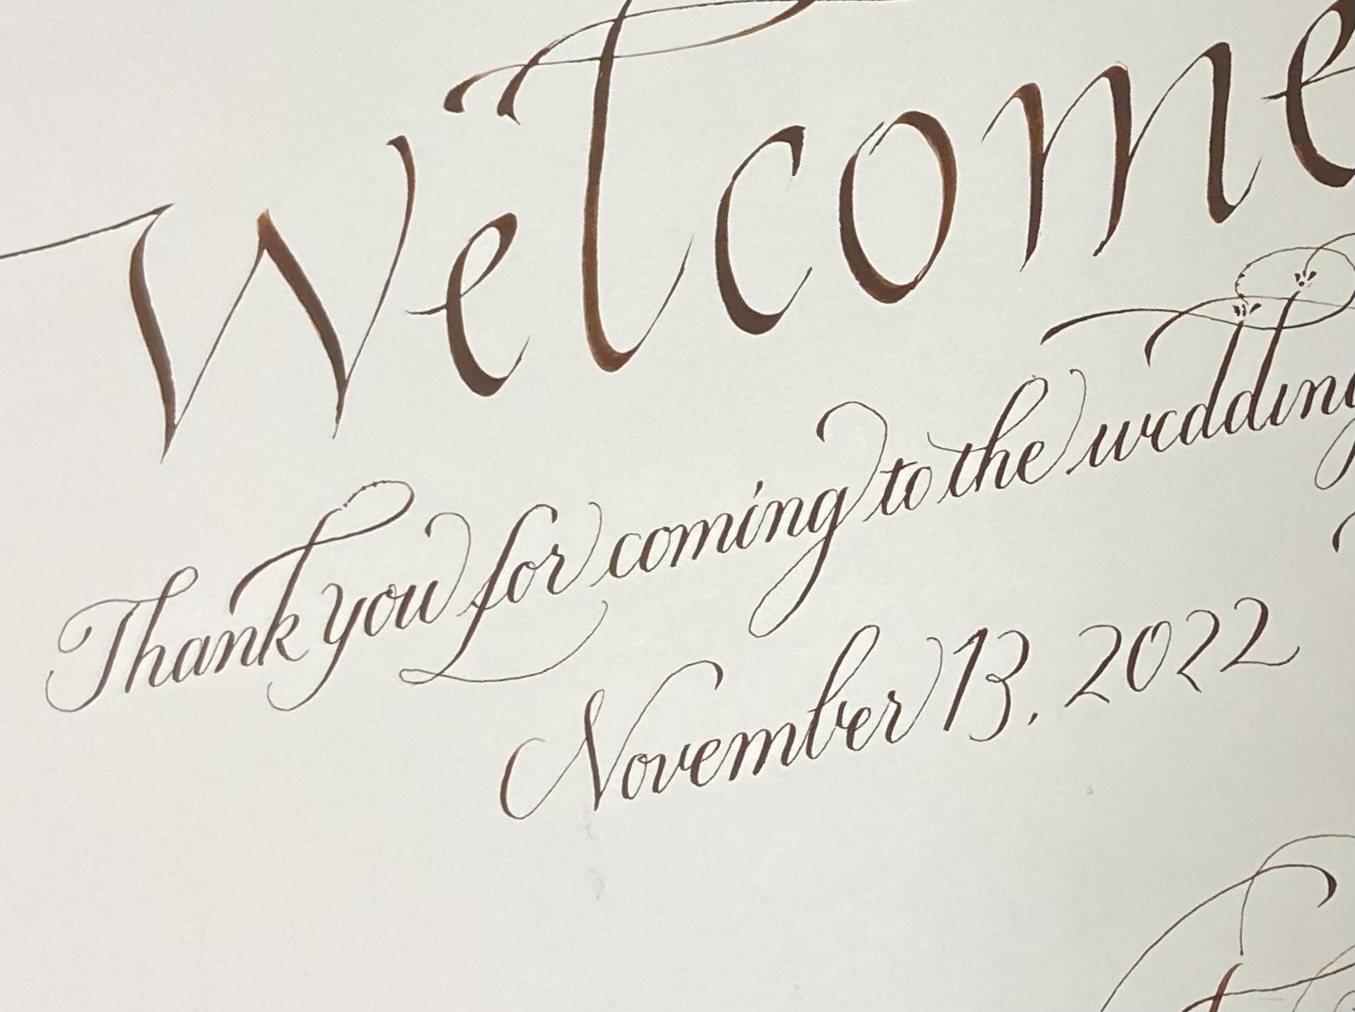 Welcome
Thank you for coming to the wedding
November 13, 2022